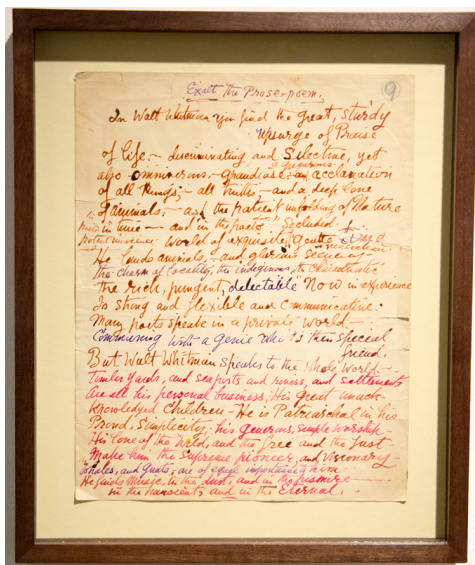 Exalt the Prose-poem.
9
In Walt Whitman you find the great, sturdy
Upsurge of Praise
of life, - discriminating and Selective, yet
also omnivorous - grandiose - an acclaration
of all things; - all truths - and a deep love
of animals. - and the patient unfolding of Nature
in time - and in the poets' Secluded
world of exquisite, gentle
He lauds animals, - and glorious scenery -
the charm of locality, the indigenous, the characteristic
the rich, pungent, delectable Now in experience
Is strong and flexible and communicative.
Many poets speak in a private world.
Communing with a genie who is their special
friend.
But Walt Whitman speaks to the whole World -
Timber yards, and seaports and rivers, and settlements
Are all his personal business; His great much-
Knowledged Children - He is Patriarchal in his
Proud, Simplicity; his generous, simple worship
His love of the World, and the free and the Just
Make him the supreme pioneer, and visionary -
Whales, and Gnats, are of equal importance to him
He finds Music, in the dust, and in the pismire -
in the transient and in the Eternal.